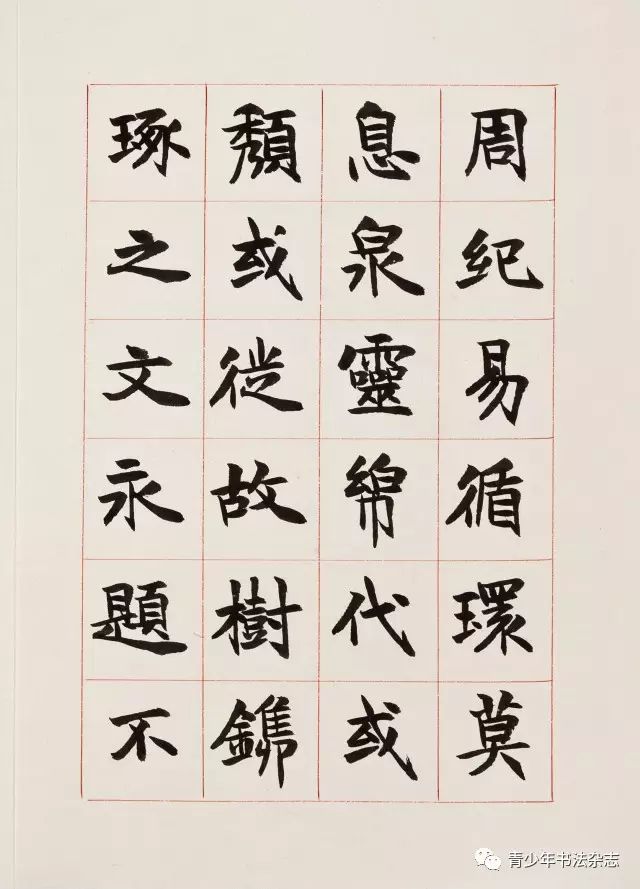 周紀易循環莫
息泉靈綿代或
頽或從故樹鐫
琢之文永題不
青少年书法杂志